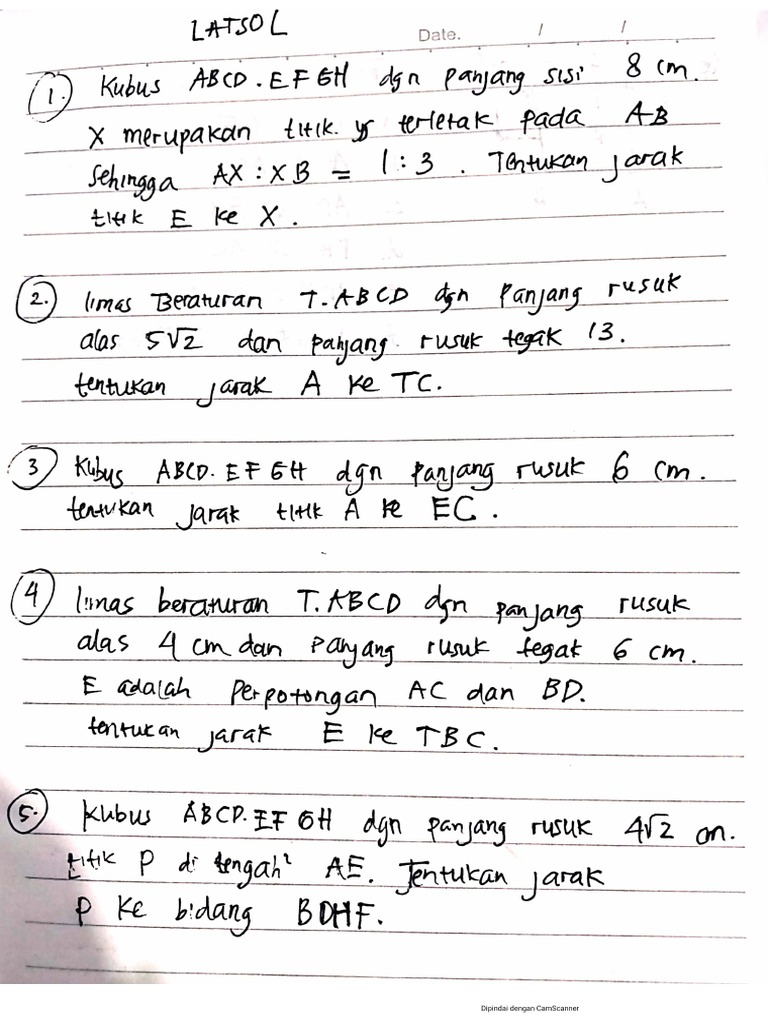 LATSOL
Date. / /
1. Kubus ABCD.EFGH dgn panjang sisi 8 cm.
X merupakan titik yg terletak pada AB
sehingga AX : XB = 1 : 3 . Tentukan jarak
titik E ke X.
2. limas Beraturan T.ABCD dgn panjang rusuk
alas 5√2 dan panjang rusuk tegak 13.
tentukan jarak A ke TC.
3 Kubus ABCD.EFGH dgn panjang rusuk 6 cm.
tentukan jarak titik A ke EC.
4 limas beraturan T.ABCD dgn panjang rusuk
alas 4 cm dan panjang rusuk tegak 6 cm.
E adalah Perpotongan AC dan BD.
tentukan jarak E ke TBC.
5. Kubus ABCD.EFGH dgn panjang rusuk 4√2 cm.
titik P di tengah² AE. Tentukan jarak
P ke bidang BDHF.
Dipindai dengan CamScanner